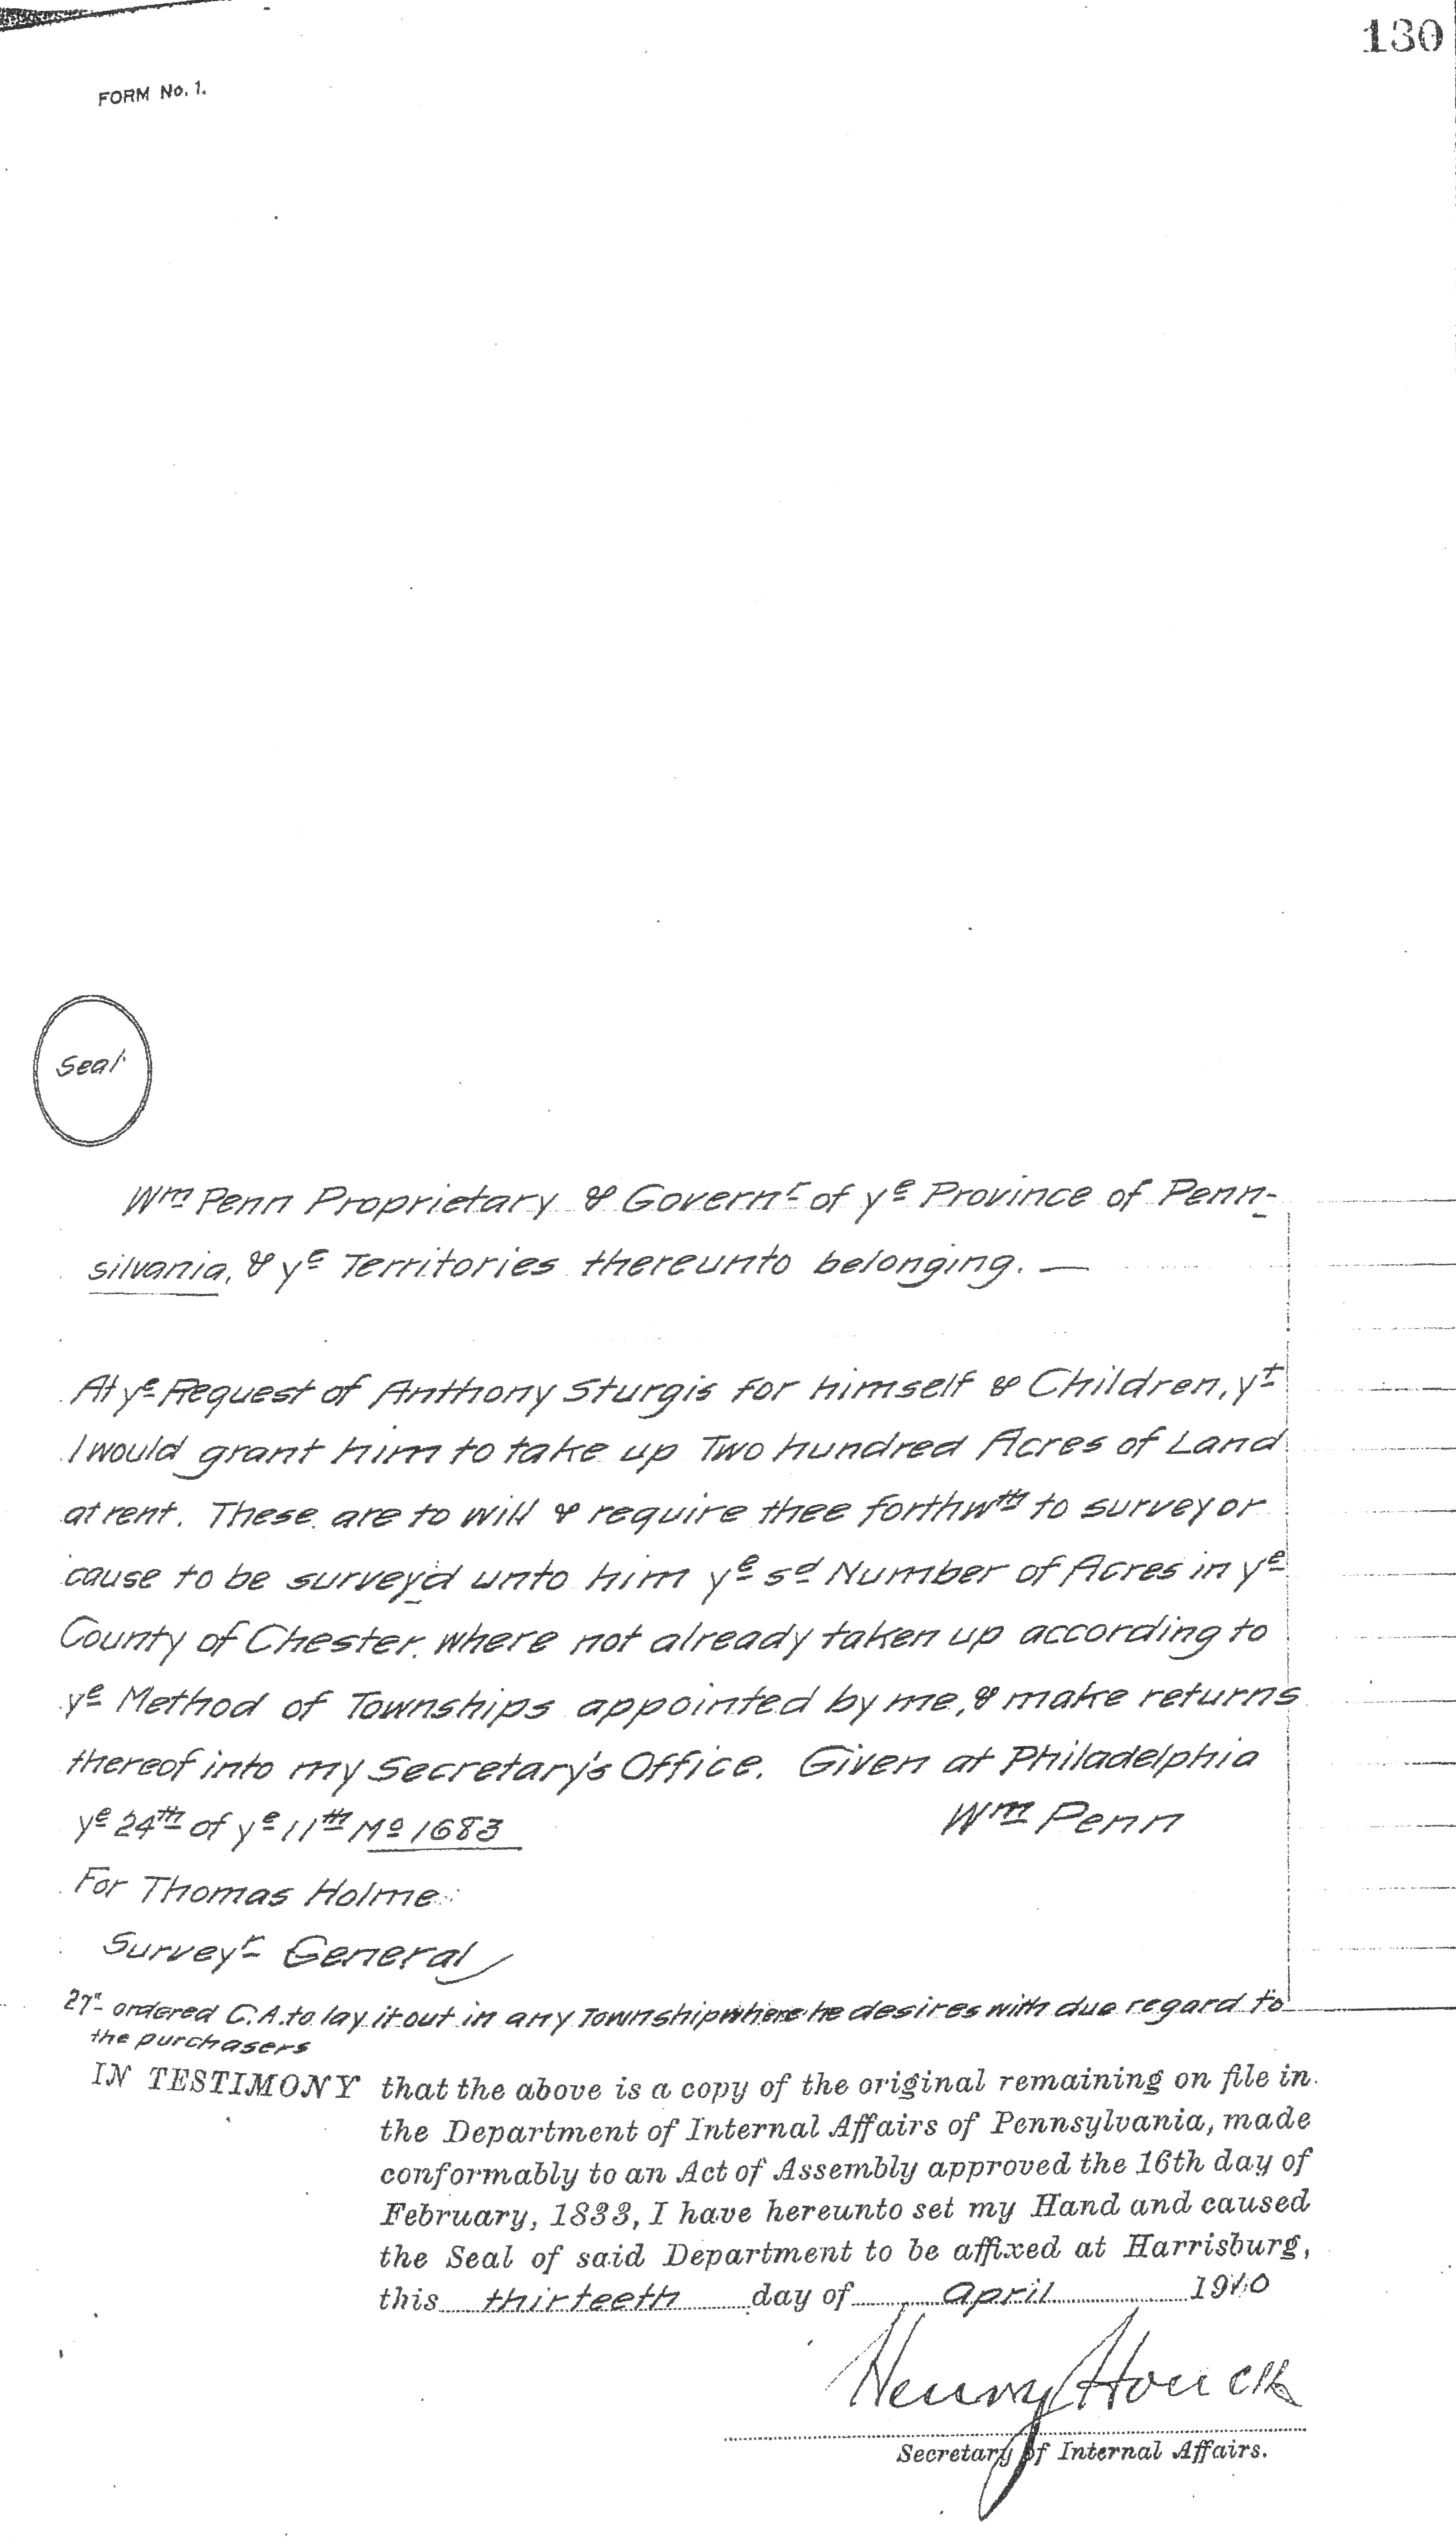 130
FORM No. 1.
Seal
Wm Penn Proprietary & Governr of ye Province of Penn-
silvania, & ye Territories thereunto belonging. —
At ye Request of Anthony Sturgis for himself & Children, yt
I would grant him to take up Two hundred Acres of Land
at rent. These are to will & require thee forthwth to survey or
cause to be survey'd unto him ye sd Number of Acres in ye
County of Chester, where not already taken up according to
ye Method of Townships appointed by me, & make returns
thereof into my Secretary's Office. Given at Philadelphia
ye 24th of ye 11th Mo 1683 Wm Penn
For Thomas Holme
Surveyr General
27th ordered C.A. to lay it out in any Township where he desires with due regard to
the purchasers
IN TESTIMONY that the above is a copy of the original remaining on file in
the Department of Internal Affairs of Pennsylvania, made
conformably to an Act of Assembly approved the 16th day of
February, 1833, I have hereunto set my Hand and caused
the Seal of said Department to be affixed at Harrisburg,
this thirteeth day of april 1910
Henry Houck
Secretary of Internal Affairs.